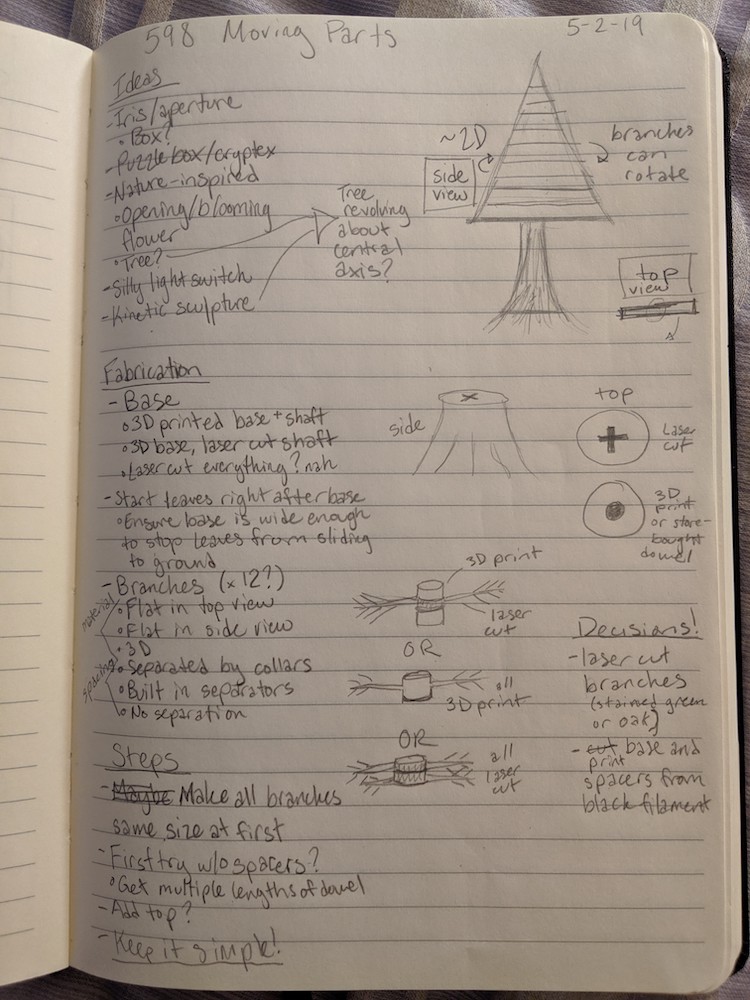 598 Moving Parts
5-2-19
Ideas
- Iris/aperture
• Box?
- Puzzle box/cryptex
- Nature-inspired
• Opening/blooming
flower
• Tree?
- Silly light switch
- Kinetic sculpture
Tree
revolving
about
central
axis?
~2D
side
view
branches
can
rotate
top
view
Fabrication
- Base
• 3D printed base + shaft
• 3D base, laser cut shaft
• Laser cut everything? nah
- Start leaves right after base
• Ensure base is wide enough
to stop leaves from sliding
to ground
- Branches (x12?)
material
• Flat in top view
• Flat in side view
• 3D
spacing
• Separated by collars
• Built in separators
• No separation
side
top
Laser
cut
3D
print
or store-
bought
dowel
3D print
laser
cut
OR
all
3D print
OR
all
laser
cut
Decisions!
- laser cut
branches
(stained green
or oak)
- cut base and
print
spacers from
black filament
Steps
- Maybe Make all branches
same size at first
- First try w/o spacers?
• Get multiple lengths of dowel
- Add top?
- Keep it simple!